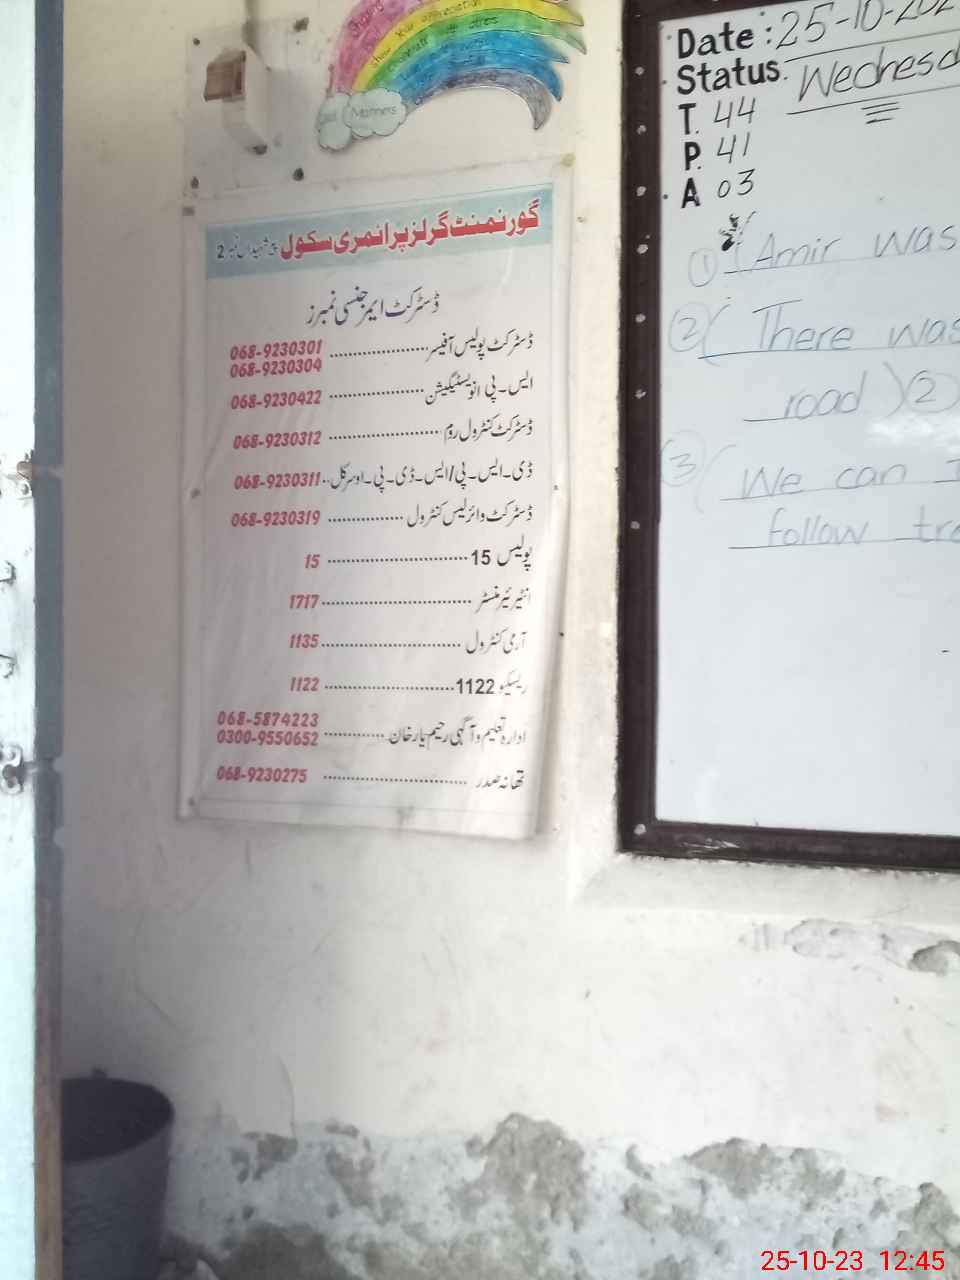 Show your appreciation
Manners
گورنمنٹ گرلز پرائمری سکول
نمبر 2
ڈسٹرکٹ ایمرجنسی نمبرز
ڈسٹرکٹ پولیس آفیسر .................... 068-9230301
068-9230304
ایس۔پی انویسٹیگیشن .................... 068-9230422
ڈسٹرکٹ کنٹرول روم ...................... 068-9230312
ڈی۔ایس۔پی/ایس۔ڈی۔پی۔اوسرکل.. 068-9230311
ڈسٹرکٹ وائرلیس کنٹرول ................ 068-9230319
پولیس 15 ............................. 15
انٹیرئیر منسٹر ............................... 1717
آرمی کنٹرول ............................. 1135
ریسکیو 1122 ........................... 1122
ادارہ تعلیم و آگہی رحیم یار خان ............. 068-5874223
0300-9550652
تھانہ صدر ............................. 068-9230275
Date : 25-10-202
Status. Wednesd
T. 44
P. 41
A 03
① Amir was
② ( There was
road ) ②
③ ( We can I
follow tra
25-10-23 12:45